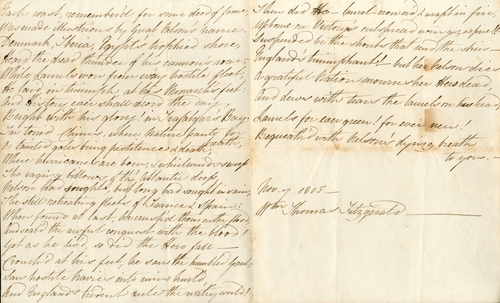 Each coast, remember'd for some deed of fame,
Was made illustrious by Great Nelson's name.
Denmark, Iberia, Egypt's trophied shore,
Heard the dread thunder of his cannons roar;
While laurels won from every hostile fleet,
He laid in triumph, at his Monarch's feet.
And History ever shall record the day
Bright with his glory! in Trafalgar's Bay.
in torrid climes, where nature pants for
or tainted gales bring pestilence & death, breath,
Where hurricanes are born, & whirlwinds sweep
The raging billows of the Atlantic deep,
Nelson had sought, but long had sought in vain,
The still retreating fleets of France & Spain:
When found at last, he crush'd them on the flood
and seal'd the awful conquest with his blood!
Yet as he liv'd, so did the Hero fall—
Crouch'd at his feet, he saw the humbled Gaul,
Saw hostile navies into ruins hurl'd,
And England's trident rule the watry world!
Then died the Hero— laurel-crown'd, & wrapt in fire
Suspended be the shouts that rend the skies
England's triumphant! but her Nelson dies
A grateful Nation mourns her Hero dead,
And dews with tears the laurels on his head
Laurels for ever green! for ever new!
Bequeath'd with Nelson's dying breath
to you.—
Nov. 7 1805—
Wm Thomas Fitzgerald —